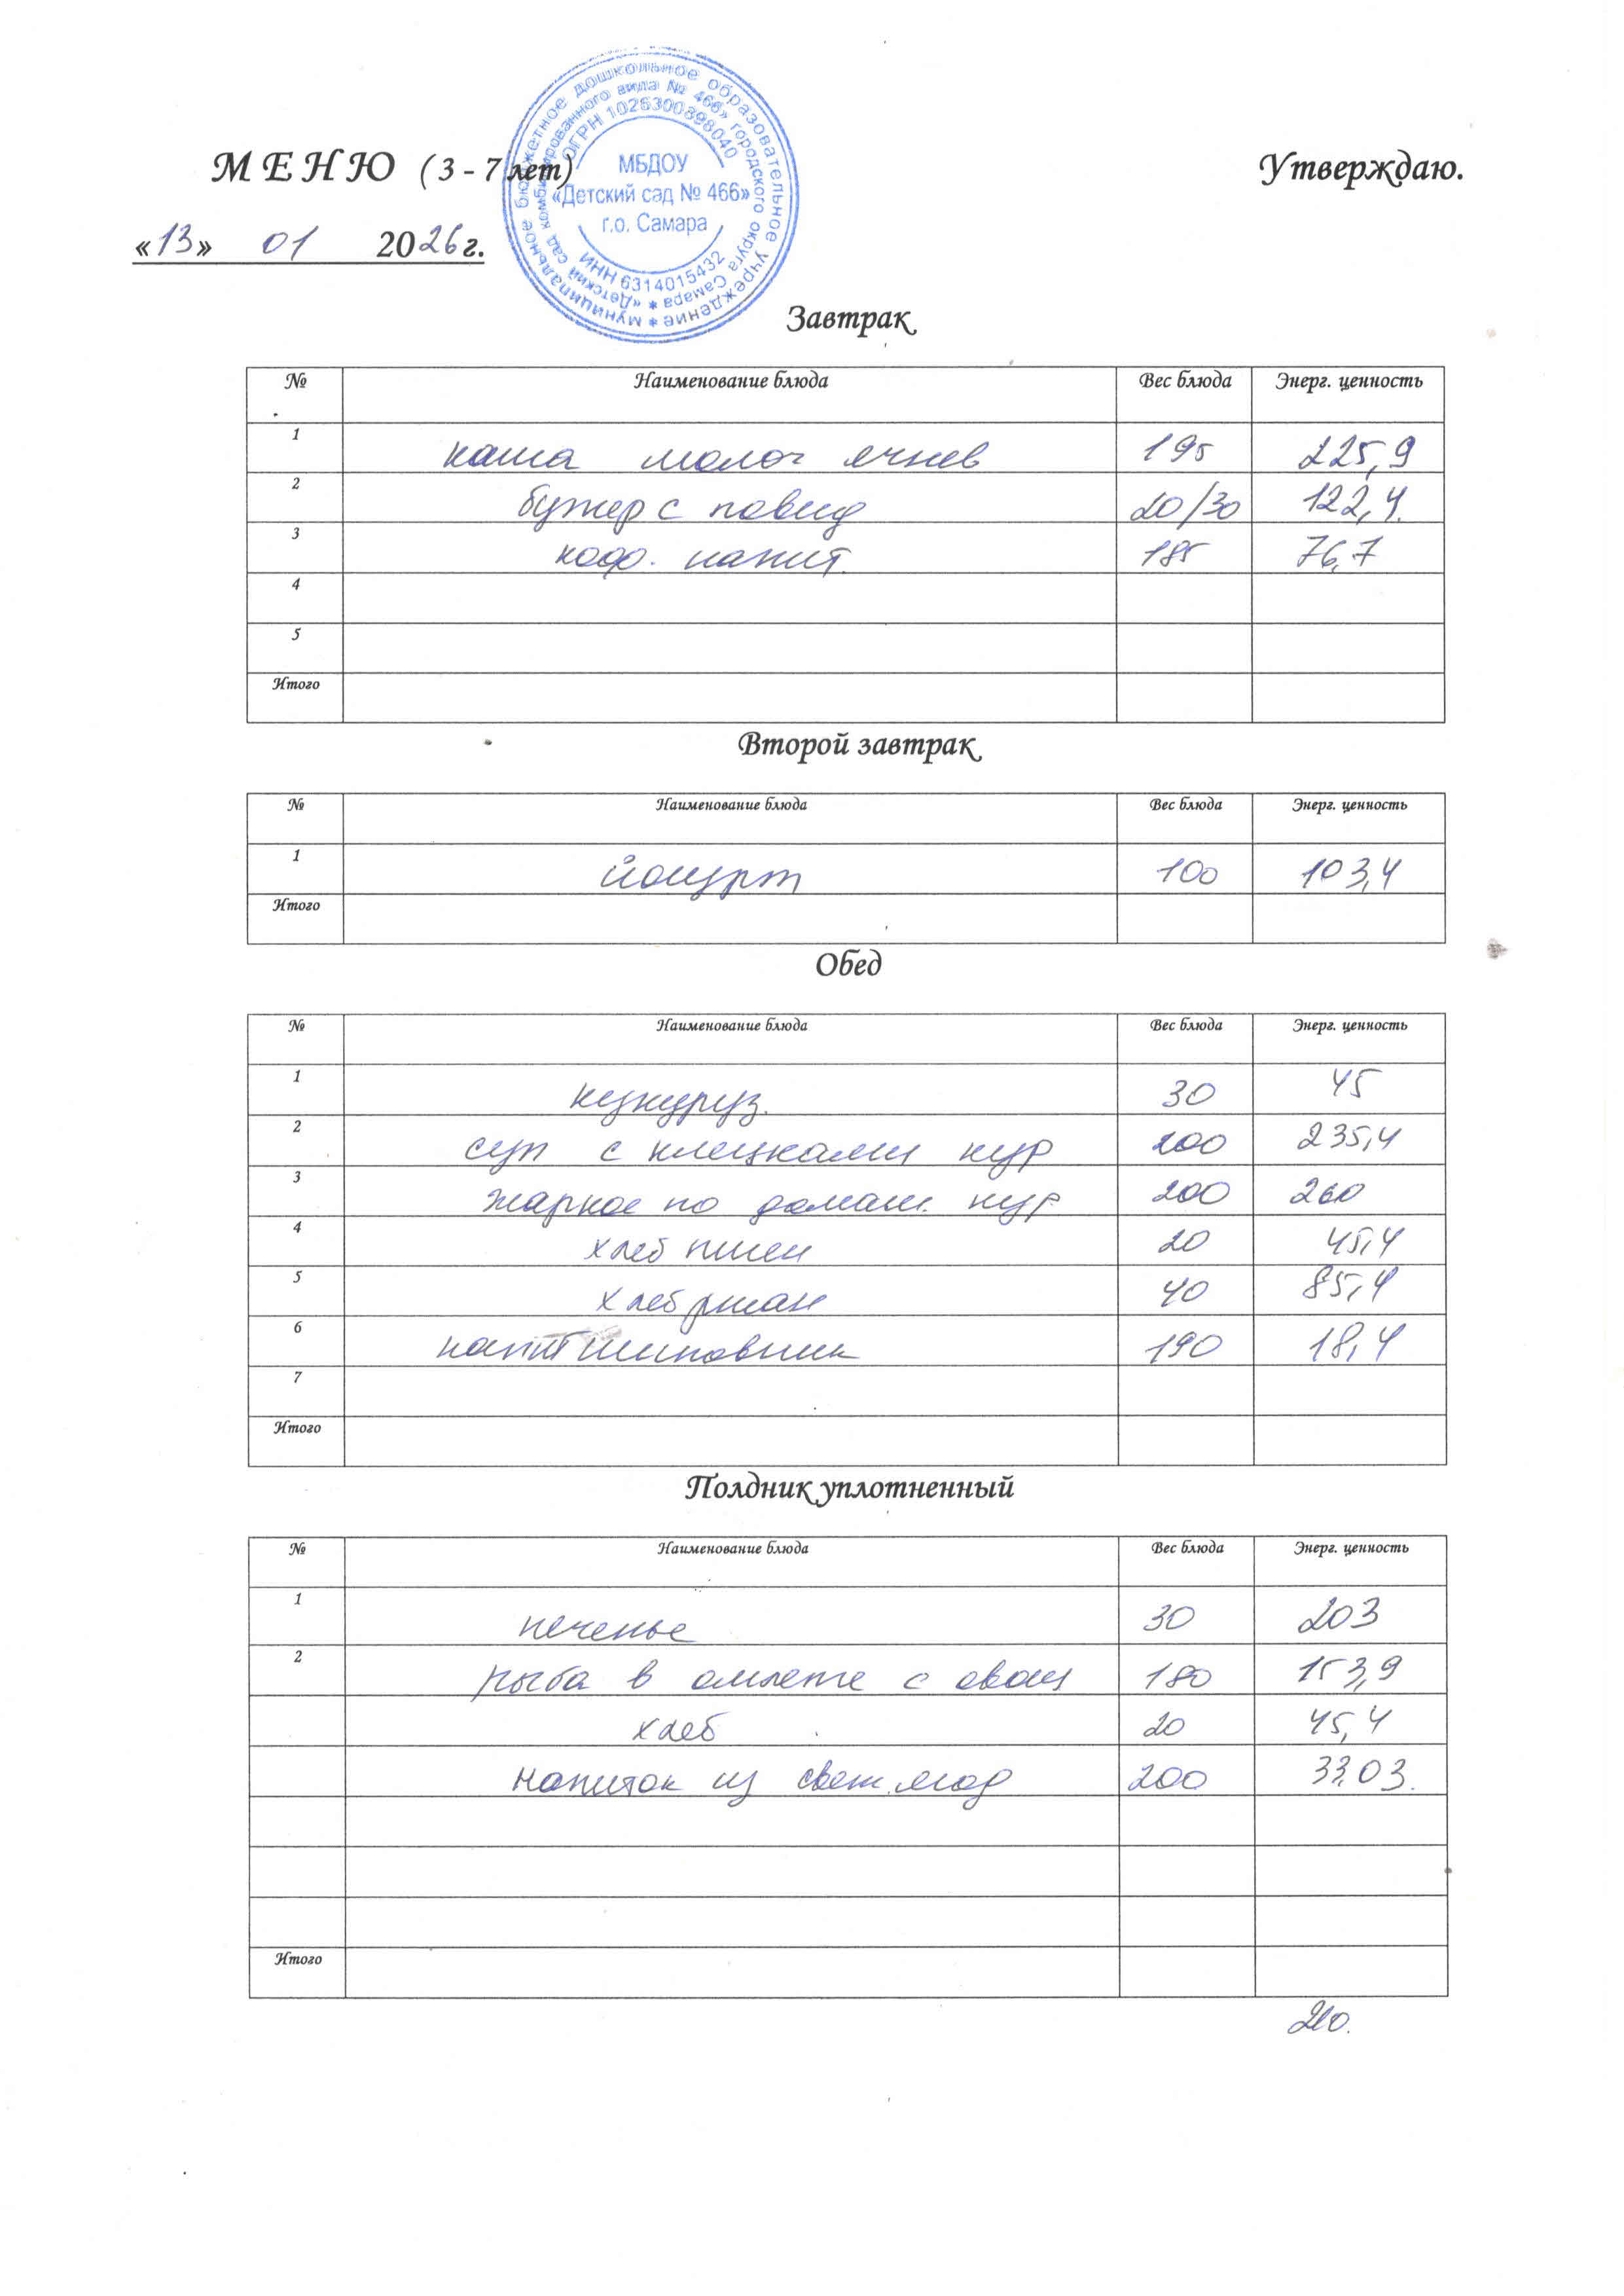 муниципальное бюджетное дошкольное образовательное учреждение
«Детский сад комбинированного вида № 466» городского округа Самара
ОГРН 1026300898040
МБДОУ
«Детский сад № 466»
г.о. Самара
ИНН 6314015432
МЕНЮ (3 - 7 лет) Утверждаю.
«13» 01 2026г.
Завтрак
№ Наименование блюда Вес блюда Энерг. ценность
1 каша молоч ячнев 195 225,9
2 бутер с повид 20/30 122,4.
3 коф. напит. 185 76,7
4
5
Итого
Второй завтрак
№ Наименование блюда Вес блюда Энерг. ценность
1 йогурт 100 103,4
Итого
Обед
№ Наименование блюда Вес блюда Энерг. ценность
1 кукуруз. 30 45
2 суп с клецками кур 200 235,4
3 жаркое по домаш. кур 200 260
4 хлеб пшен 20 45,4
5 хлеб ржан 40 85,4
6 напит шиповник 190 18,4
7
Итого
Полдник уплотненный
№ Наименование блюда Вес блюда Энерг. ценность
1 печенье 30 203
2 рыба в омлете с овощ 180 153,9
хлеб 20 45,4
напиток из свеж.ягод 200 33,03.
Итого